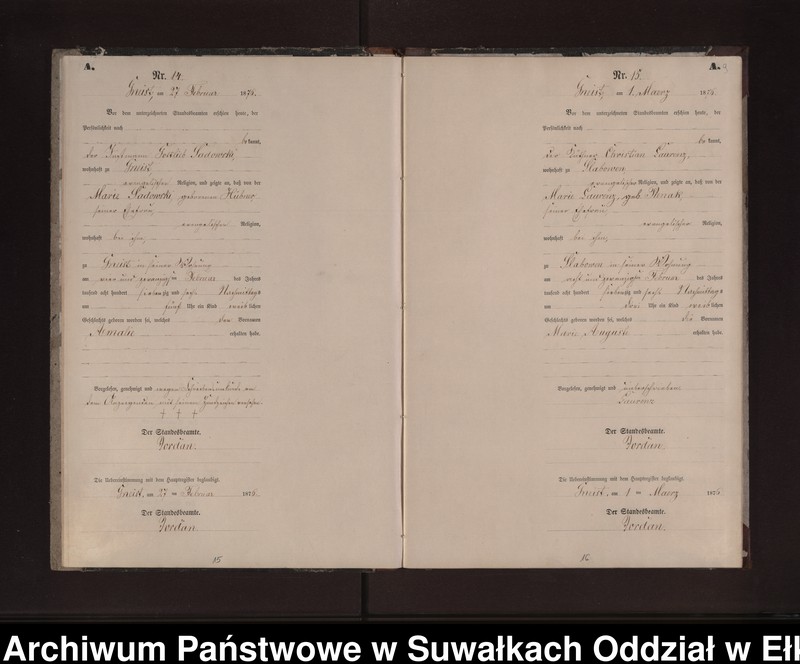 A.
Nr. 14.
am 27 Februar 1876.
Vor dem unterzeichneten Standesbeamten erschien heute, der
Persönlichkeit nach
be kannt,
der Gottlieb Sadowski,
wohnhaft zu
evangelischer Religion, und zeigte an, daß von der
Marie Sadowski, geborenen Hübner
seiner Ehefrau,
evangelischer Religion,
wohnhaft bei ihm,
zu in seiner Wohnung
am zwanzigsten Februar des Jahres
tausend acht hundert siebenzig und sechs Nachmittags
um fünf Uhr ein Kind weib lichen
Geschlechts geboren worden sei, welches den Vornamen
Amalie erhalten habe.
Vorgelesen, genehmigt und wegen
dem Anzeigenden mit seinem Handzeichen versehen
† † †
Der Standesbeamte.
Jordan.
Die Uebereinstimmung mit dem Hauptregister beglaubigt.
am 27 ten Februar 1876.
Der Standesbeamte.
Jordan.
15
A.
Nr. 15.
am 1. Maerz 1876
Vor dem unterzeichneten Standesbeamten erschien heute, der
Persönlichkeit nach
be kannt,
der Christian
wohnhaft zu Slabowen
evangelischer Religion, und zeigte an, daß von der
Marie geb.
seiner Ehefrau,
evangelischer Religion,
wohnhaft bei ihm,
zu Slabowen in seiner Wohnung
am zwanzigsten Februar des Jahres
tausend acht hundert siebenzig und sechs Nachmittags
um drei Uhr ein Kind weib lichen
Geschlechts geboren worden sei, welches die Vornamen
Marie Auguste erhalten habe.
Vorgelesen, genehmigt und unterschrieben
Der Standesbeamte.
Jordan.
Die Uebereinstimmung mit dem Hauptregister beglaubigt.
am 1 ten Maerz 1876
Der Standesbeamte.
Jordan.
16
Archiwum Państwowe w Suwałkach Oddział w Ełk